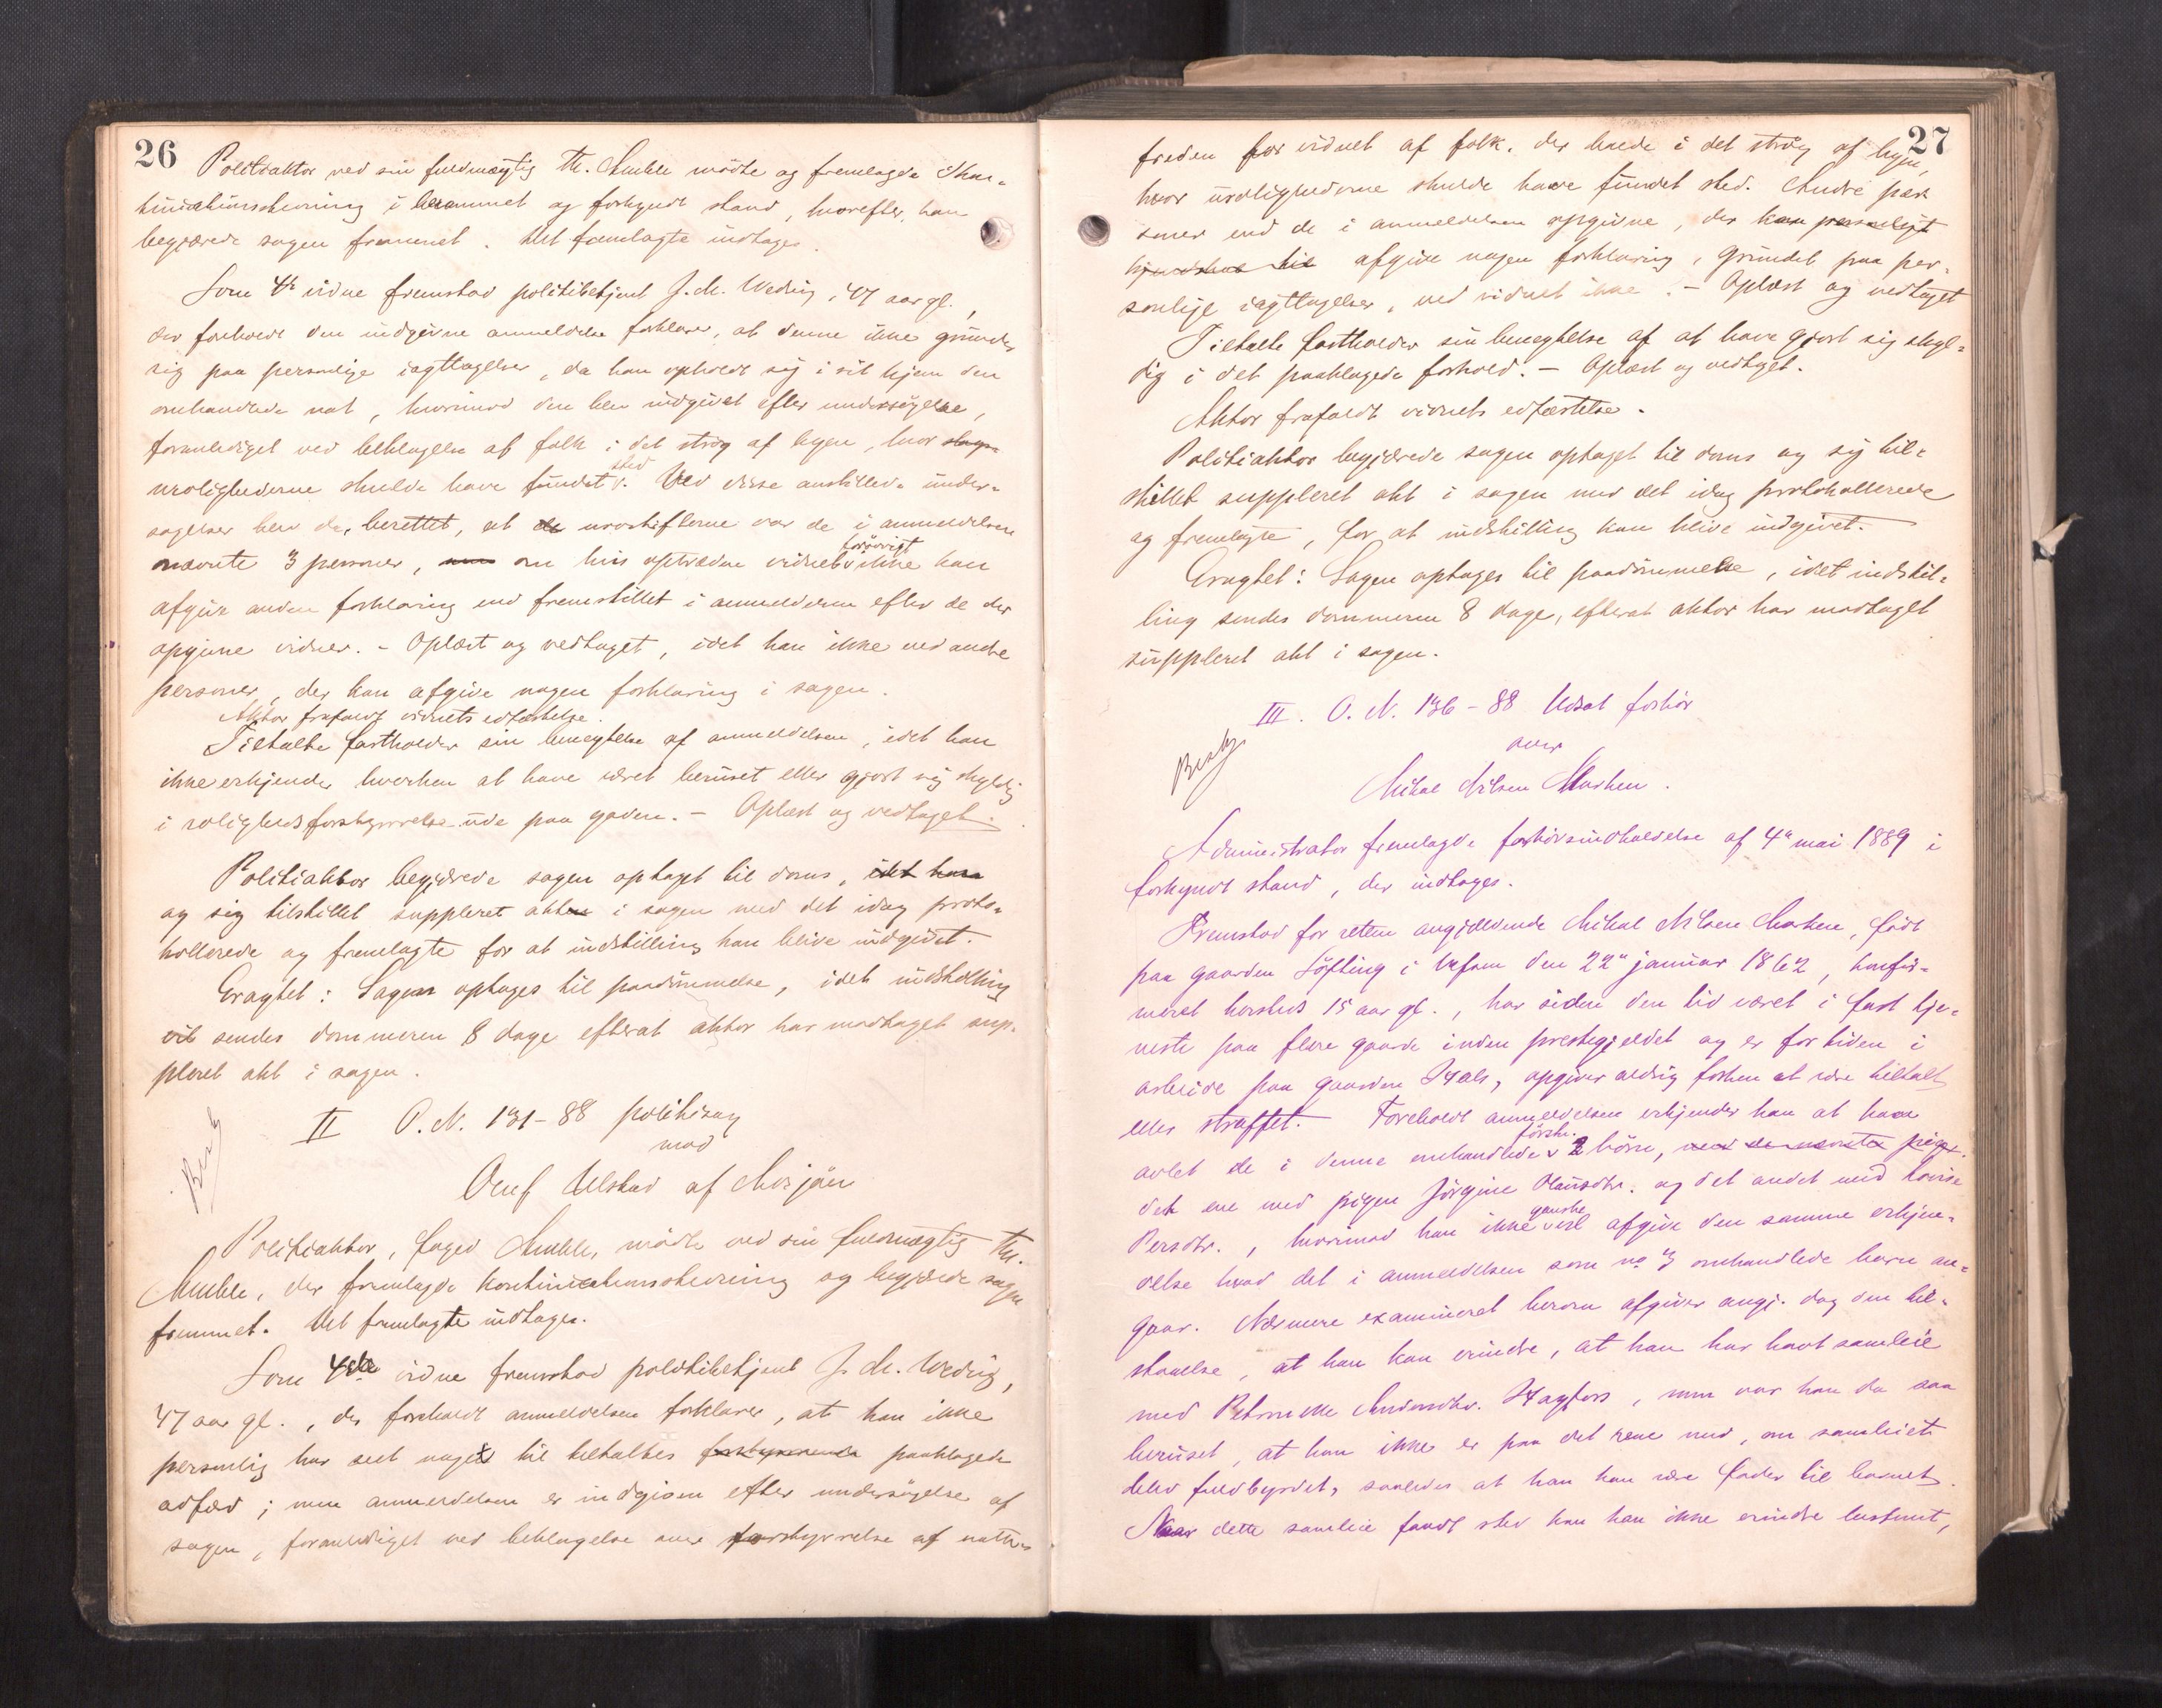 26
Politiaktor ved sin fuldmægtig Th. Amble mödte og fremlagde Kon-
tinuationsstevning i berammet og forkyndt stand, hvorefter han
begjærede sagen fremmet. Det fremlagte indtages.
Som 4de vidne fremstod politibetjent J. M. Weding, 47 aar gl.,
der foreholdt den indgivne anmeldelse forklarer, at denne ikke grunder
sig paa personlige iagttagelser, da han opholdt sig i sit hjem den
omhandlede nat, hvorimod den blev indgivet efter undersögelse,
foranlediget ved beklagelse af folk i det strög af byen, hvor slags
urolighederne skulde have fundet sted. Ved disse anstillede under-
sögelser blev der berettet, at de urostifterne var de i anmeldelsen
nævnte 3 personer, men om hvis optræden vidnet forövrigt ikke kan
afgive anden forklaring end fremstillet i anmeldelsen efter de der
opgivne vidner. - Oplæst og vedtaget, idet han ikke ved andre
personer, der kan afgive nogen forklaring i sagen.
Aktor frafaldt vidnets edfæstelse.
Tiltalte fastholder sin benegtelse af anmeldelsen, idet han
ikke erkjender hverken at have været beruset eller gjort sig skyldig
i rolighedsforstyrrelse ude paa gaden. - Oplæst og vedtaget.
Politiaktor begjærede sagen optaget til doms, idet han
og sig tilstillet suppleret akten i sagen med det idag proto-
kollerede og fremlagte for at indstilling kan blive indgivet.
Eragtet: Sagen optages til paadömmelse, idet indstilling
vil sendes dommeren 8 dage efterat aktor har modtaget sup-
pleret akt i sagen.
Besk
II O. N. 131-88 politisag
mod
Oluf Ulstad af Mosjöen
Politiaktor, foged Amble, mödte ved sin fuldmægtig Th.
Amble, der fremlagde kontinuationsstevning og begjærede sagen
fremmet. Det fremlagte indtages.
Som 4de vidne fremstod politibetjent J. M. Weding,
47 aar gl., der foreholdt anmeldelsen forklarer, at han ikke
personlig har seet noget til tiltaltes forstyrrende paaklagede
adfærd; men anmeldelsen er indgiven efter undersögelse af
sagen, foranlediget ved beklagelse over forstyrrelse af natte-
27
freden for vidnet af folk, der boede i det strög af byen,
hvor urolighederne skulde have fundet sted. Andre per-
soner end de i anmeldelsen opgivne, der kan personligt
kjendskab til afgive nogen forklaring, grundet paa per-
sonlige iagttagelser, ved vidnet ikke. - Oplæst og vedtaget
Tiltalte fastholder sin benegtelse af at have gjort sig skyl-
dig i det paaklagede forhold. - Oplæst og vedtaget.
Aktor frafaldt vidnets edfæstelse.
Politiaktor begjærede sagen optaget til doms og sig til-
stillet suppleret akt i sagen med det idag protokollerede
og fremlagte, for at indstilling kan blive indgivet.
Eragtet: Sagen optages til paadömmelse, idet indstil-
ling sendes dommeren 8 dage, efterat aktor har modtaget
suppleret akt i sagen.
III. O. N. 136-88 Udsat forhör
over
Besk
Mikal Nilsen Marken.
Administrator fremlagde forhörsindkaldelse af 4de mai 1889 i
forkyndt stand, der indtages.
Fremstod for retten angjældende Mikal Nilsen Marken, född
paa gaarden Söfting i Vefsen den 22de januar 1862, konfir-
meret 15 aar gl., har siden den tid været i fast tje-
neste paa flere gaarde inden prestegjeldet og er for tiden i
arbeide paa gaarden Hals, opgiver aldrig forhen at være tiltalt
eller straffet. Foreholdt anmeldelsen erkjender han at have
avlet de i denne omhandlede förste 2 börn, med de nævnte piger.
det ene med pigen Jörgine Olausdtr. og det andet med Lovise
Persdtr., hvorimod han ikke ganske vil afgive den samme erkjen-
delse hvad det i anmeldelsen som no 3 omhandlede barn an-
gaar. Nærmere examineret herom afgiver angj. dog den til-
staaelse, at han kan erindre, at han har havt samleie
med Petronelle Andersdtr. Hagfors, men var han da saa
beruset, at han ikke er paa det rene med, om samleiet
blev fuldbyrdet, saaledes at han kan være fader til barnet.
Naar dette samleie fandt sted kan han ikke erindre bestemt,